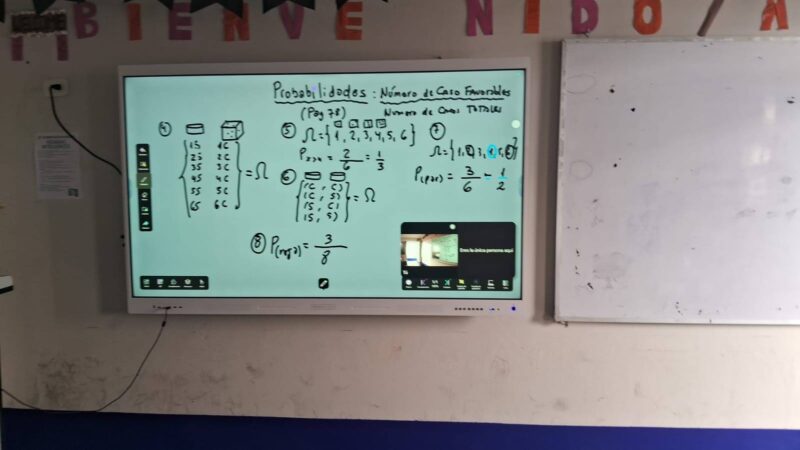 BIENVENIDO/A
Probabilidades : Número de Caso Favorables
(Pag 78) Número de Casos TOTALES
④
1S 1C
2S 2C
3S 3C
4S 4C
5S 5C
6S 6C
= Ω
⑤
Ω = { 1, 2, 3, 4, 5, 6 }
= 2/6 = 1/3
⑥
(C, C)
(C, S)
(S, C)
(S, S)
= Ω
⑦
P(par) = 3/6 = 1/2
⑧ P(roja) = 3/8
Eres la única persona aquí